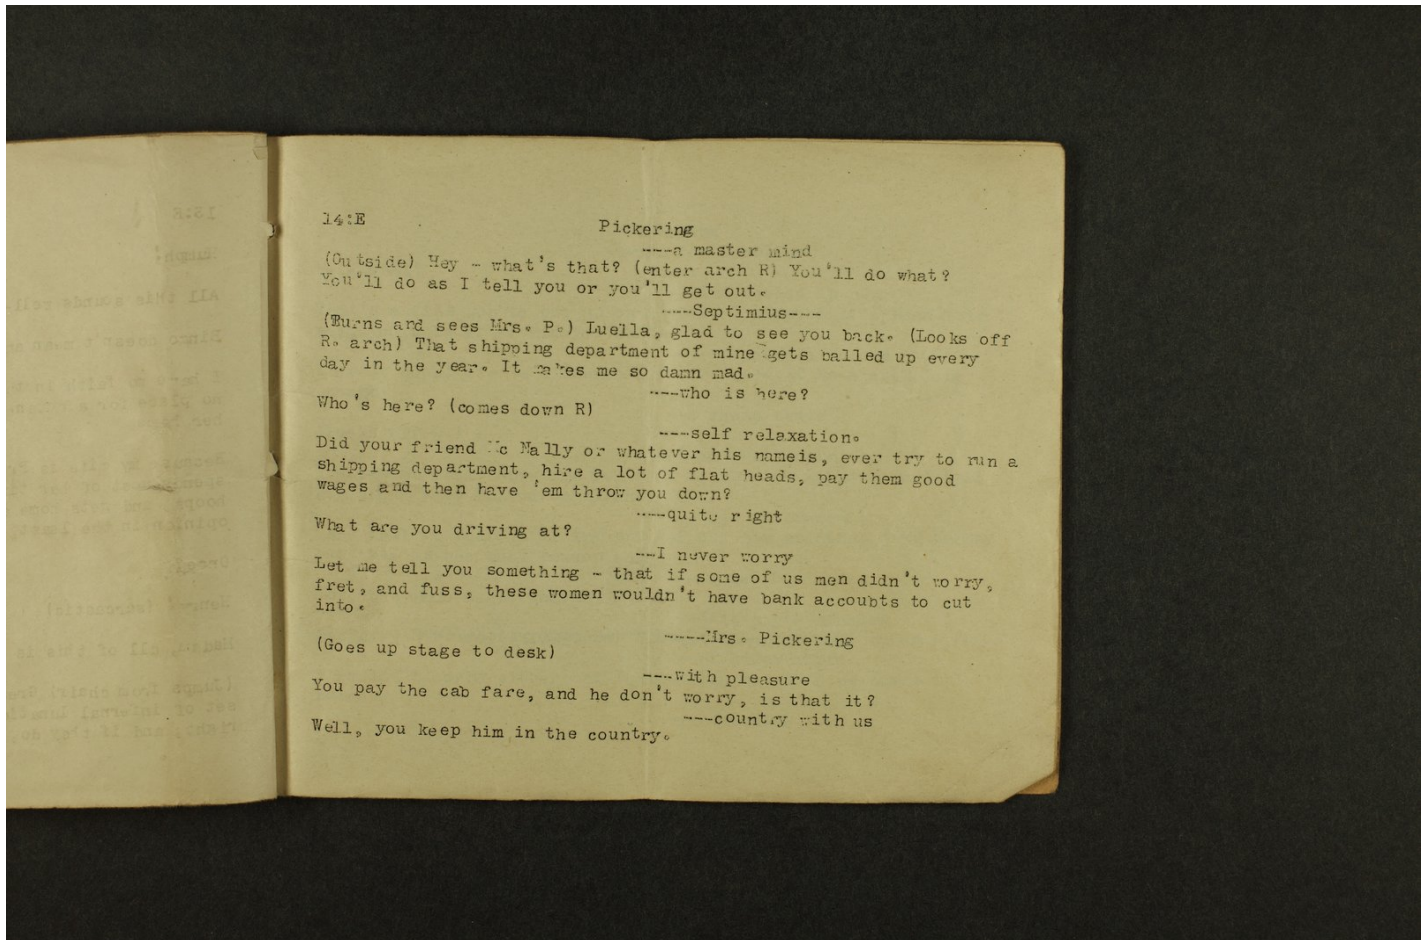 14:E
Pickering
----a master mind
(Outside) Hey - what's that? (enter arch R) You'll do what?
You'll do as I tell you or you'll get out.
-----Septimius---
(Turns and sees Mrs. P.) Luella, glad to see you back. (Looks off
R. arch) That shipping department of mine gets balled up every
day in the year. It makes me so damn mad.
----who is here?
Who's here? (comes down R)
----self relaxation.
Did your friend Mc Nally or whatever his nameis, ever try to run a
shipping department, hire a lot of flat heads, pay them good
wages and then have 'em throw you down?
-----quite right
What are you driving at?
---I never worry
Let me tell you something - that if some of us men didn't worry,
fret, and fuss, these women wouldn't have bank accoubts to cut
into.
-----Mrs. Pickering
(Goes up stage to desk)
----with pleasure
You pay the cab fare, and he don't worry, is that it?
----country with us
Well, you keep him in the country.